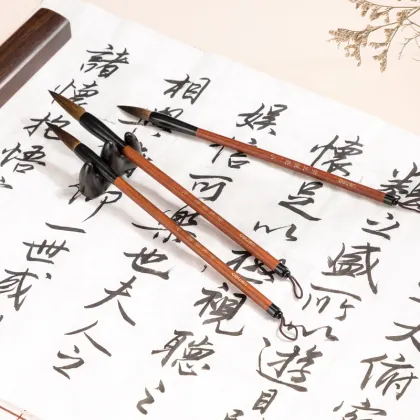 大俯
類之盛所以遊目
懷足以極視聽之
娛信可樂也夫人之
相與仰一世或
諸懷抱悟